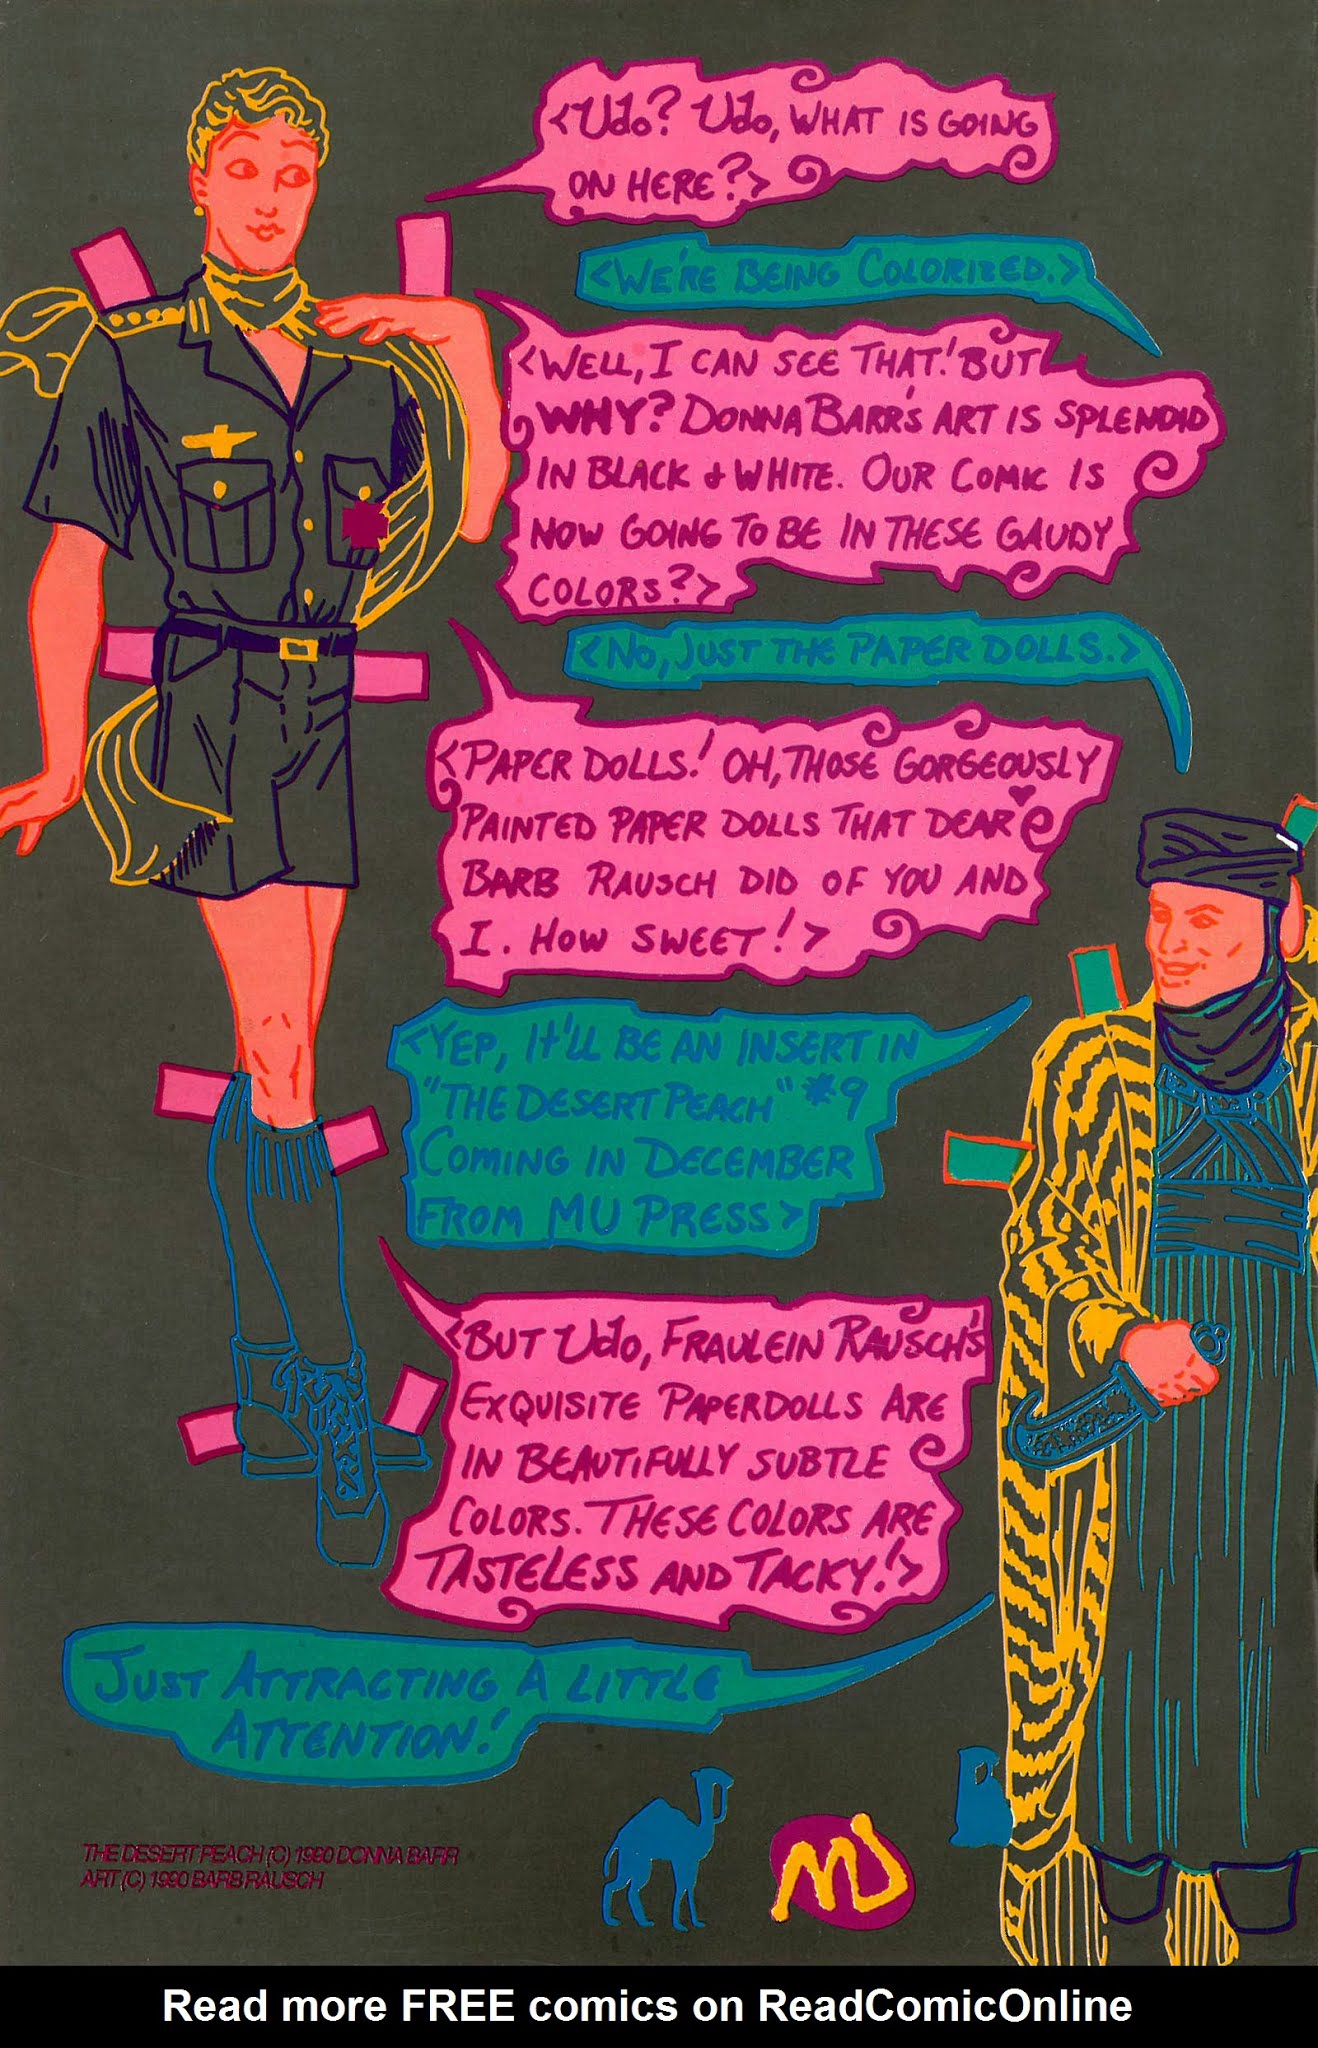 <Udo? Udo, WHAT IS GOING
ON HERE?>
<WE'RE BEING COLORIZED.>
<WELL, I CAN SEE THAT! BUT
WHY? DONNA BARR'S ART IS SPLENDID
IN BLACK & WHITE. OUR COMIC IS
NOW GOING TO BE IN THESE GAUDY
COLORS?>
<NO, JUST THE PAPER DOLLS.>
<PAPER DOLLS! OH, THOSE GORGEOUSLY
PAINTED PAPER DOLLS THAT DEAR
BARB RAUSCH DID OF YOU AND
I. HOW SWEET!>
<YEP, IT'LL BE AN INSERT IN
"THE DESERT PEACH" #9
COMING IN DECEMBER
FROM MU PRESS>
<BUT Udo, FRAULEIN RAUSCH'S
EXQUISITE PAPERDOLLS ARE
IN BEAUTIFULLY SUBTLE
COLORS. THESE COLORS ARE
TASTELESS AND TACKY!>
JUST ATTRACTING A LITTLE
ATTENTION!
MU
THE DESERT PEACH (C) 1990 DONNA BARR
ART (C) 1990 BARB RAUSCH
Read more FREE comics on ReadComicOnline